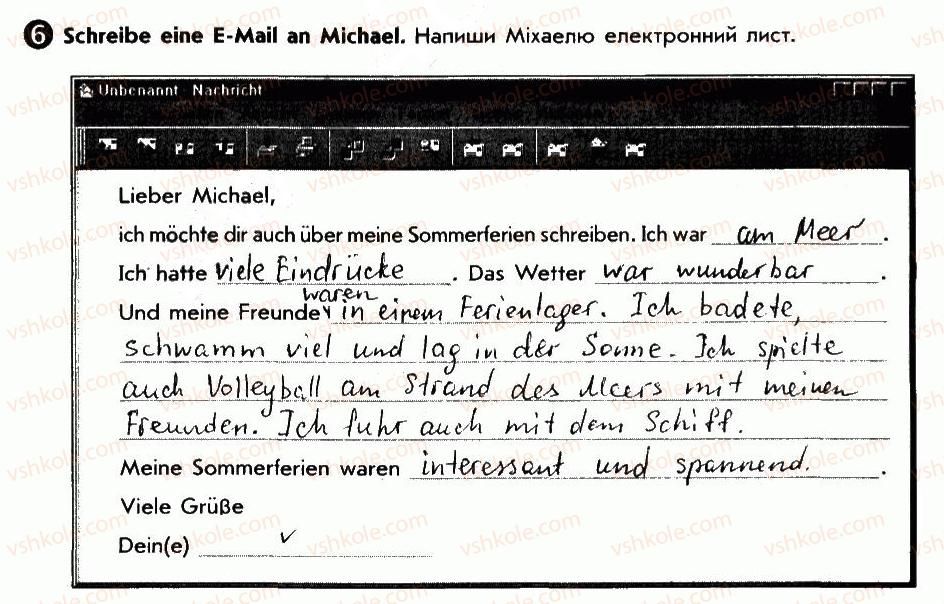 6 Schreibe eine E-Mail an Michael. Напиши Міхаелю електронний лист.
Unbenannt Nachricht
Lieber Michael,
ich möchte dir auch über meine Sommerferien schreiben. Ich war am Meer.
Ich hatte viele Eindrücke. Das Wetter war wunderbar.
waren
Und meine Freunde in einem Ferienlager. Ich badete,
schwamm viel und lag in der Sonne. Ich spielte
auch Volleyball am Strand des Meers mit meinen
Freunden. Ich fuhr auch mit dem Schiff.
Meine Sommerferien waren interessant und spannend.
Viele Grüße
Dein(e) ✓
vshkole.com